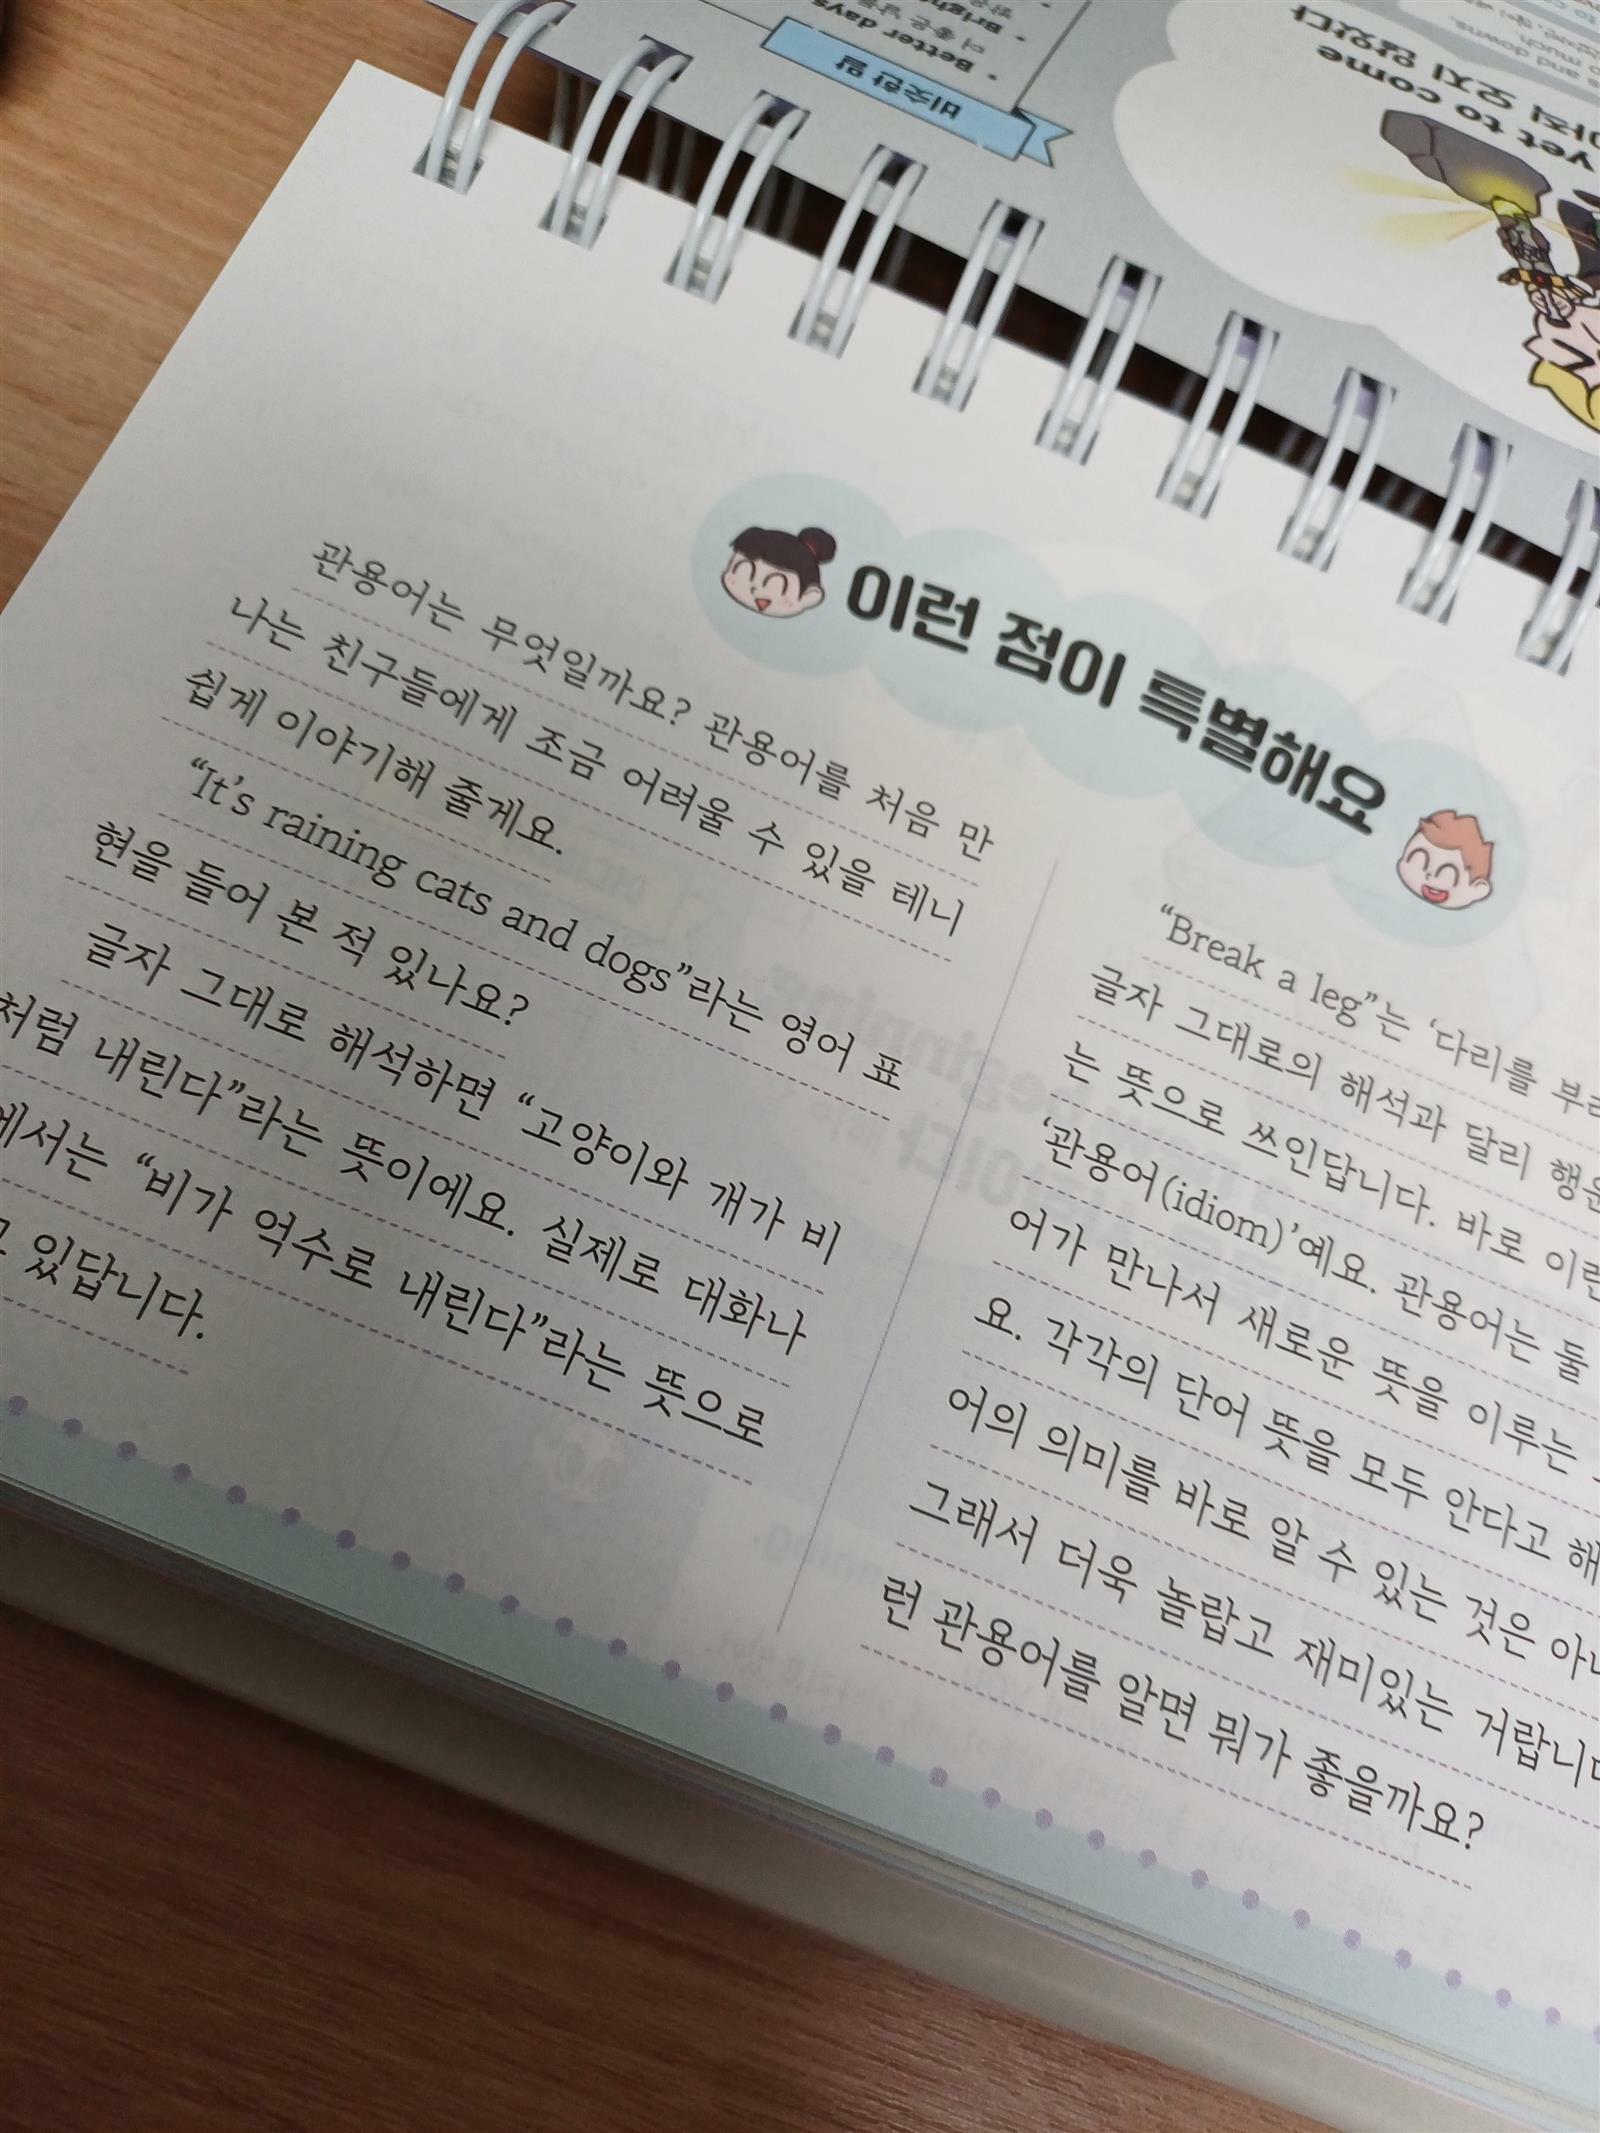 비슷한 말
Better days
더 좋은
yet to come
아직 오지 않았다
이런 점이 특별해요
관용어는 무엇일까요? 관용어를 처음 만
나는 친구들에게 조금 어려울 수 있을 테니
쉽게 이야기해 줄게요.
“It’s raining cats and dogs”라는 영어 표
현을 들어 본 적 있나요?
글자 그대로 해석하면 “고양이와 개가 비
처럼 내린다”라는 뜻이에요. 실제로 대화나
에서는 “비가 억수로 내린다”라는 뜻으로
있답니다.
“Break a leg”는 ‘다리를
글자 그대로의 해석과 달리
는 뜻으로 쓰인답니다. 바로
‘관용어(idiom)’예요. 관용어는 둘
어가 만나서 새로운 뜻을 이루는
요. 각각의 단어 뜻을 모두 안다고
어의 의미를 바로 알 수 있는 것은
그래서 더욱 놀랍고 재미있는
런 관용어를 알면 뭐가 좋을까요?